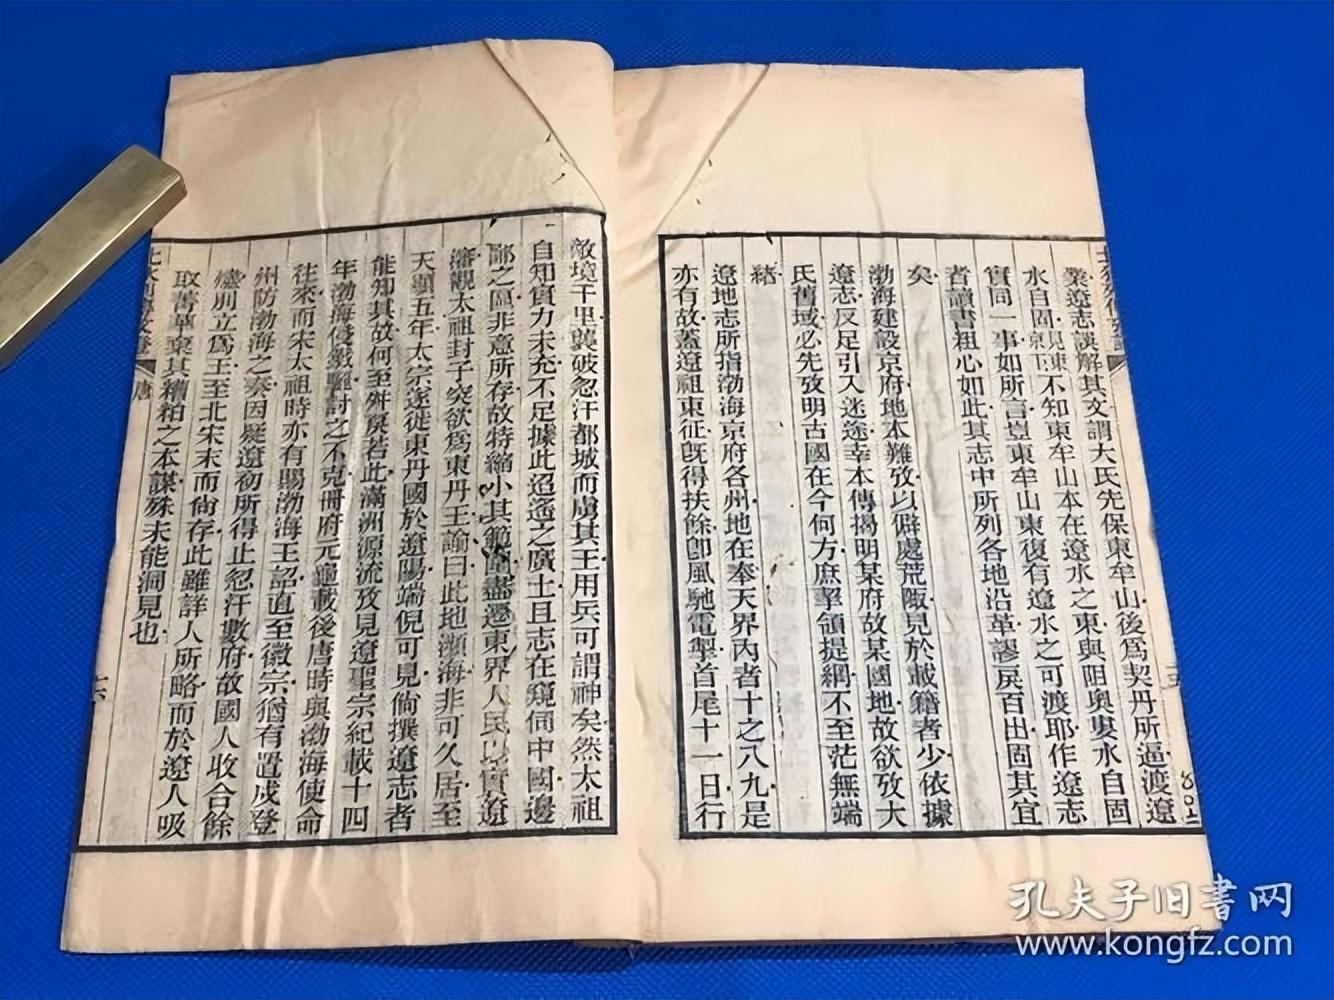 案遼志誤解其文謂大氏先保東牟山後爲契丹所逼渡遼
水自固見東京下不知東牟山本在遼水之東與阻奧婁水自固
實同一事如所言豈東牟山東復有遼水之可渡耶作遼志
者讀書粗心如此其志中所列各地沿革謬戾百出固其宜
矣
渤海建設京府地本難攷以僻處荒陬見於載籍者少依據
遼志反足引入迷途幸本傳揭明某府故某國地故欲攷大
氏舊域必先攷明古國在今何方庶挈領提綱不至茫無端
緒
遼地志所指渤海京府各州地在奉天界內者十之八九是
亦有故蓋遼祖東征既得扶餘卽風馳電掣首尾十一日行
敵境千里襲破忽汗都城而虜其王用兵可謂神矣然太祖
自知實力未充不足據此迢遙之廣土且志在窺伺中國邊
鄙之區非意所存故特縮小其範圍盡遷東界人民以實遼
瀋觀太祖封子突欲爲東丹王諭曰此地瀕海非可久居至
天顯五年太宗遂徙東丹國於遼陽端倪可見倘撰遼志者
能知其故何至舛戾若此滿洲源流攷見遼聖宗紀載十四
年渤海侵鐵驪討之不克冊府元龜載後唐時與渤海使命
往來而宋太祖時亦有賜渤海王詔直至徽宗猶有置戍登
州防渤海之奏因疑遼初所得止忽汗數府故國人收合餘
燼別立爲王至北宋末而尙存此雖詳人所略而於遼人吸
取菁華棄其糟粕之本謀殊未能洞見也
唐
十六
孔夫子旧書网
www.kongfz.com